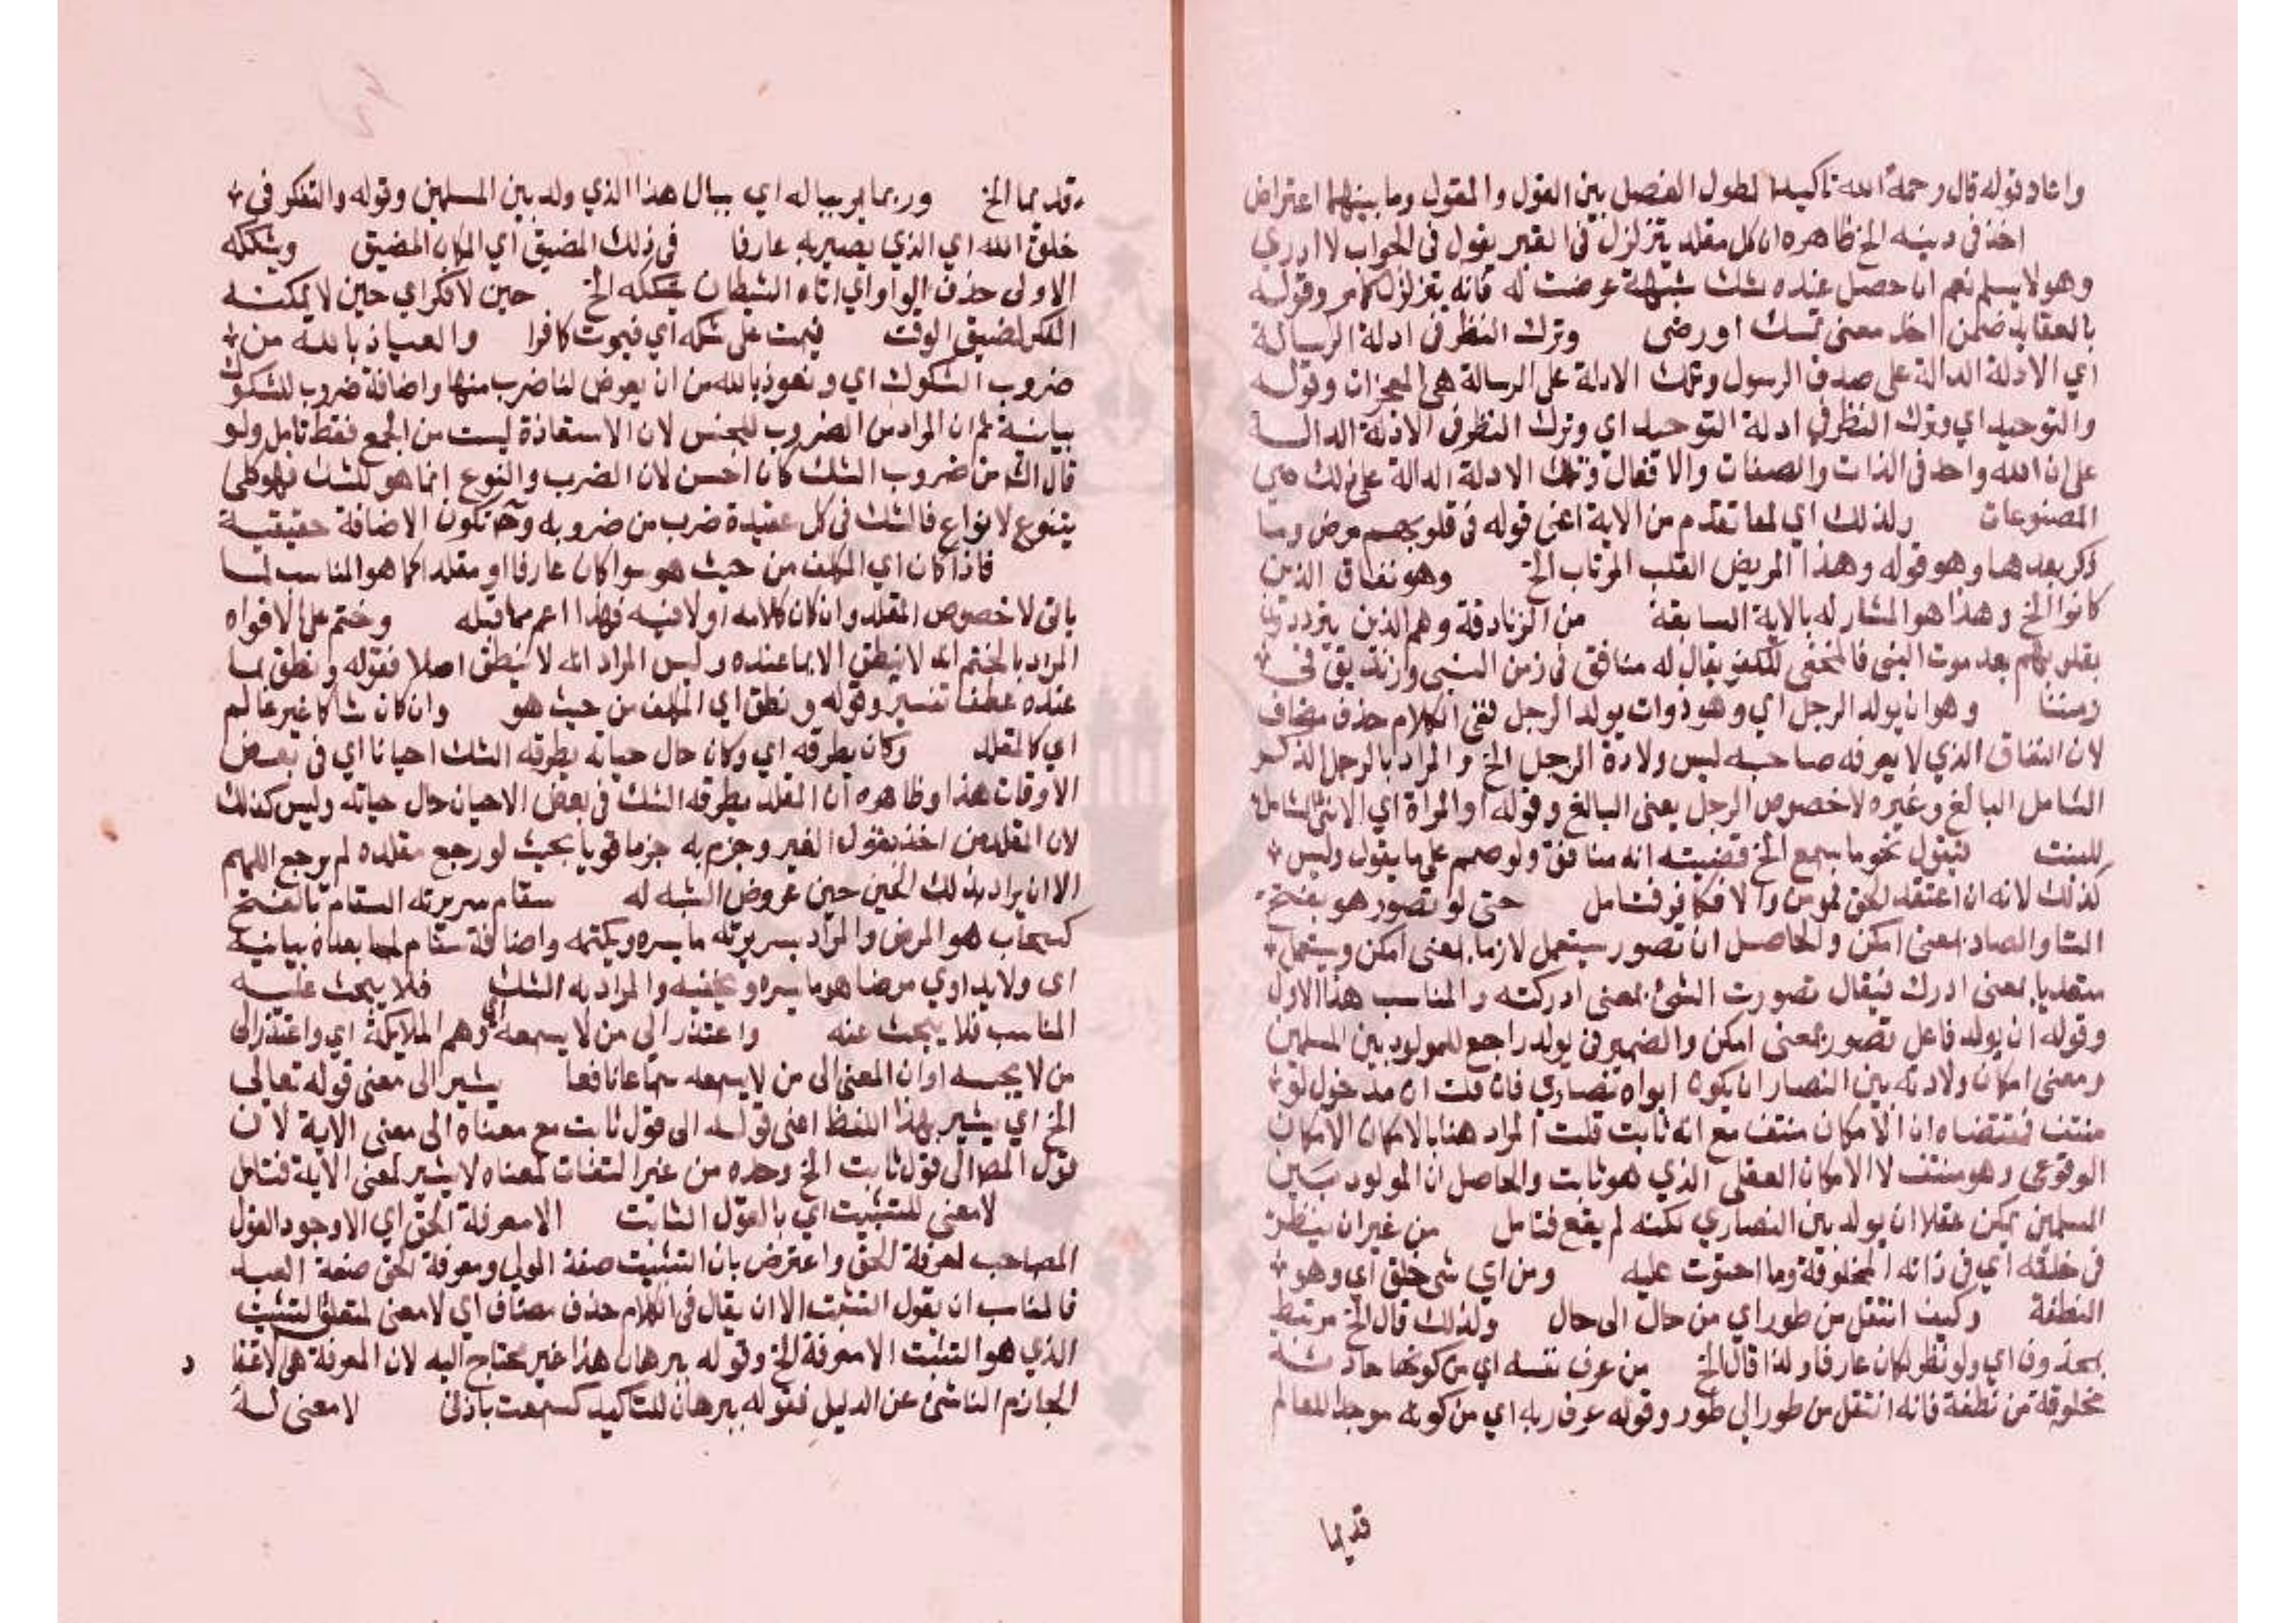 واعاد قوله قال رحمه الله تاكيدا لطول الفصل بين القول والمقول وما بينهما اعتراض
اخذ في دينه الخ ظاهره ان كل مقلد يتزلزل في القبر يقول في الجواب لا ادري
وهو لا يسلم نعم ان حصل عنده شك شبهة عرضت له فانه يتزلزل كما مر وقوله
بالعقايد ضمن اخذ معنى تمسك او رضى وترك النظر في ادلة الرسالة
اي الادلة الدالة على صدق الرسول وتلك الادلة على الرسالة هي المعجزات وقوله
والتوحيد اي وترك النظر في ادلة التوحيد اي وترك النظر في الادلة الدالة
على ان الله واحد في الذات والصفات والافعال وتلك الادلة الدالة على ذلك هي
المصنوعات ولذلك اي لما تقدم من الاية اعني قوله في قلوبهم مرض وما
ذكر بعدها وهو قوله وهذا المريض القلب المرتاب الخ وهو نفاق الذين
كانوا الخ وهذا هو المشار له بالاية السابقة من الزنادقة وهم الذين يترددون
بقلوبهم بعد موت النبي فالمخفي للكفر يقال له منافق في زمن النبي وزنديق في
زمننا وهو ان يولد الرجل اي وهو ذوات يولد الرجل ففي الكلام حذف مضاف
لان النفاق الذي لا يعرفه صاحبه ليس ولادة الرجل الخ والمراد بالرجل الذكر
الشامل البالغ وغيره لا خصوص الرجل يعني البالغ وقوله او المراة اي الانثى الشاملة
للبنت فيقول نحو ما سمع الخ قضيته انه منافق ولو صمم على ما يقول وليس
كذلك لانه ان اعتقد الحق فمومن والا فكافر فتامل حتى لو تصور هو بفتح
التا والصاد بمعنى امكن والحاصل ان تصور يستعمل لازما بمعنى امكن ويستعمل
متعديا بمعنى ادرك فيقال تصورت الشئ بمعنى ادركته والمناسب هنا الاول
وقوله ان يولد فاعل تصور بمعنى امكن والضمير في يولد راجع للمولود بين المسلمين
ومعنى امكان ولادته بين النصارا ان يكون ابواه نصارى فان قلت ان مدخول لو
منتف فمقتضاه ان الامكان منتف مع انه ثابت قلت المراد هنا بالامكان الامكان
الوقوعي وهو منتف لا الامكان العقلي الذي هو ثابت والحاصل ان المولود بين
المسلمين يمكن عقلا ان يولد بين النصارى لكنه لم يقع فتامل من غير ان ينظر
في خلقه اي في ذاته المخلوقة وما احتوت عليه ومن اي شي خلق اي وهو
النطفة وكيف انتقل من طور اي من حال الى حال ولذلك قال الخ مرتبط
بمحذوف اي ولو نظر لكان عارفا ولذا قال الخ من عرف نفسه اي من كونها حادثة
مخلوقة من نطفة فانه انتقل من طور الى طور وقوله عرف ربه اي من كونه موجدا للعالم
قديما
قديما الخ وربما يرببا له اي ببال هذا الذي ولد بين المسلمين وقوله والتفكر في
خلق الله اي الذي يصير به عارفا في ذلك المضيق اي المكان المضيق ويشككه
الاولى حذف الواو اي اتاه الشيطان يشككه الخ حين لا فكر اي حين لا يمكنه
الفكر لضيق الوقت فيمت على شكه اي فيموت كافرا والعياذ بالله من
ضروب الشكوك اي ونعوذ بالله من ان يعرض لنا ضرب منها واضافة ضروب للشكوك
بيانية ثم ان المراد من الضروب الجنس لان الاستعاذة ليست من الجمع فقط تامل ولو
قال الش من ضروب الشك كان احسن لان الضرب والنوع انما هو للشك فهو كلي
يتنوع لانواع فالشك في كل عقيدة ضرب من ضروبه وح تكون الاضافة حقيقية
فاذا كان اي المكلف من حيث هو سوا كان عارفا او مقلدا كما هو المناسب لما
ياتي لا خصوص المقلد وان كان كلامه اولا فيه فهذا اعم مما قبله وختم على الافواه
المراد بالختم انه لا ينطق الا بما عنده وليس المراد انه لا ينطق اصلا فقوله ونطق بما
عنده عطف تفسير وقوله ونطق اي المكلف من حيث هو وان كان شاكا غير عالم
اي كالمقلد وكان يطرقه اي وكان حال حياته يطرقه الشك احيانا اي في بعض
الاوقات هذا وظاهره ان المقلد يطرقه الشك في بعض الاحيان حال حياته وليس كذلك
لان المقلد من اخذ بقول الغير وجزم به جزما قويا بحيث لو رجع مقلده لم يرجع اللهم
الا ان يراد بذلك الحين حين عروض الشبه له سقام سريرته السقام بالفتح
كسحاب هو المرض والمراد بسريرته ما يسره ويكتمه واضافة سقام لما بعده بيانية
اي ولا يداوي مرضا هو ما يسره ويخفيه والمراد به الشك فلا يبحث عليه
المناسب فلا يبحث عنه واعتذر الى من لا يسمعه اي وهم الملايكة اي واعتذر الى
من لا يجيبه او ان المعنى الى من لا يسمعه سماعا نافعا يشير الى معنى قوله تعالى
الخ اي يشير بهذا اللفظ اعني قوله الى قول ثابت مع معناه الى معنى الاية لان
قول المص الى قول ثابت الخ وحده من غير التفات لمعناه لا يشير لمعنى الاية فتامل
لا معنى للتثبيت اي بالقول الثابت الا معرفة الحق اي الا وجود القول
المصاحب لمعرفة الحق واعترض بان التثبيت صفة المولى ومعرفة الحق صفة العبد
فالمناسب ان يقول التثبت الا ان يقال في الكلام حذف مضاف اي لا معنى لمتعلق التثبيت
الذي هو التثبت الا معرفة الخ وقوله ببرهان هذا غير محتاج اليه لان المعرفة هي الاعتقاد
الجازم الناشئ عن الدليل فقوله ببرهان للتاكيد كسمعت باذنى لا معنى له